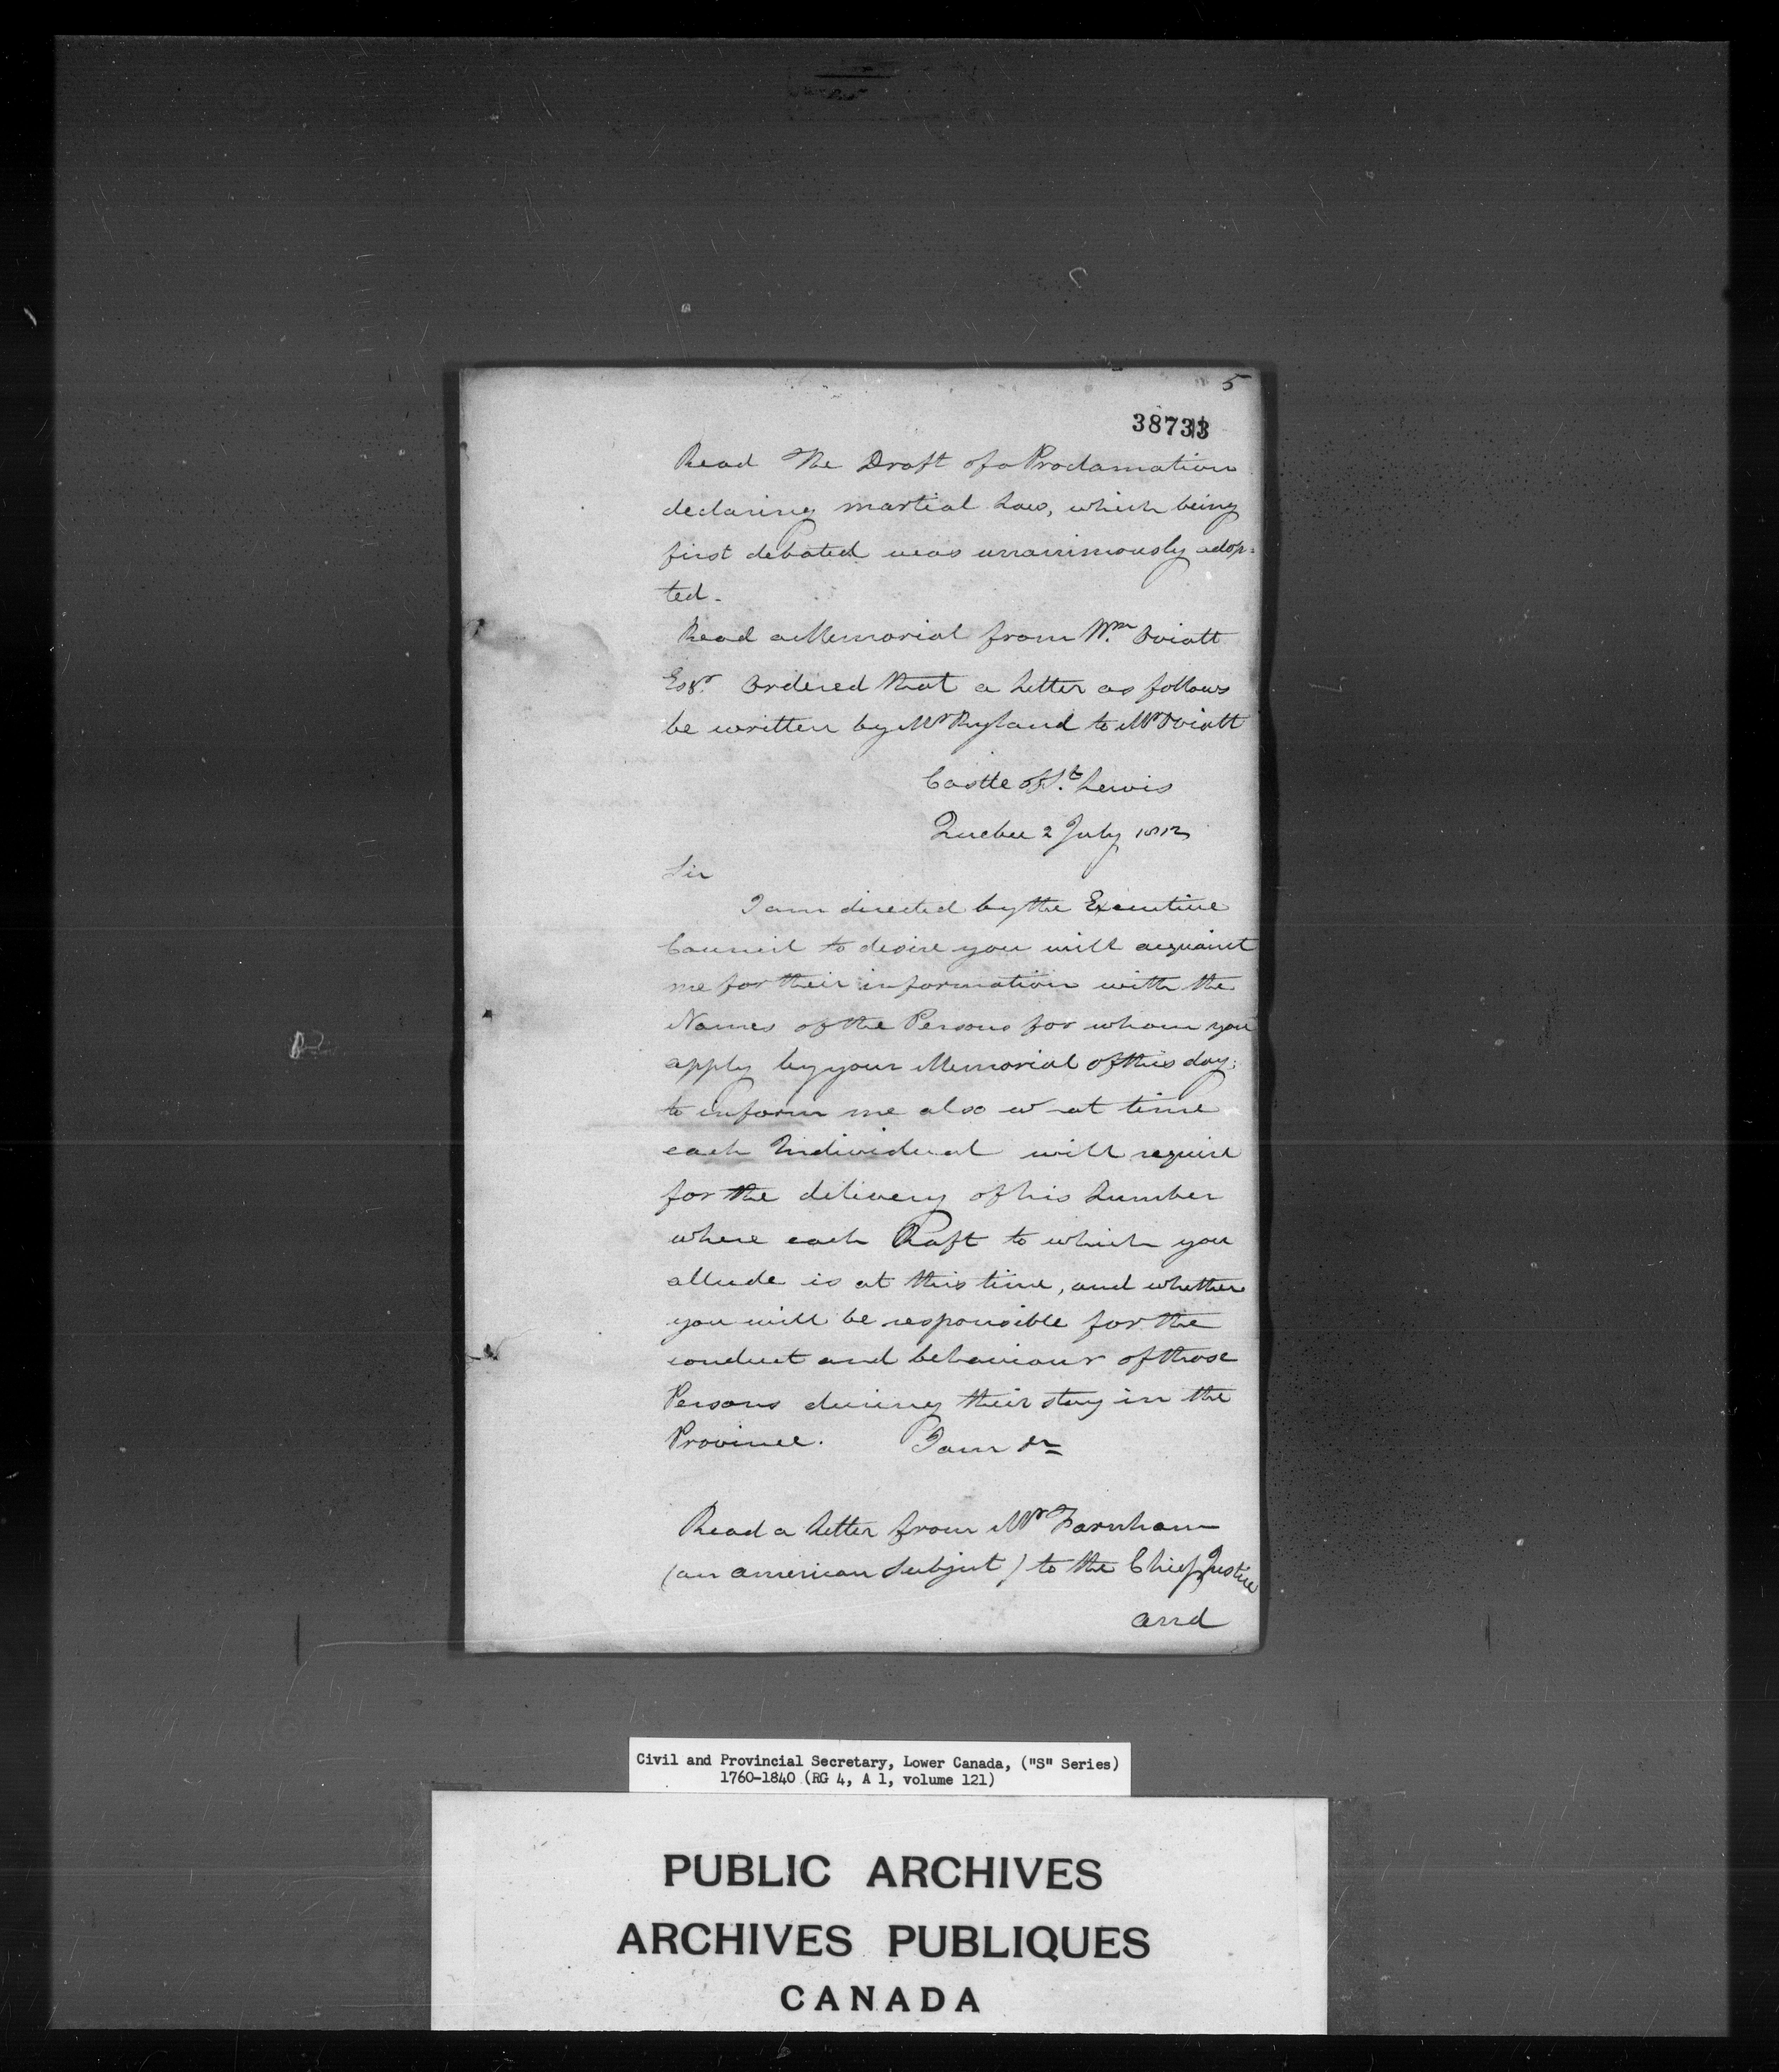 5
38733
Read The Draft of a Proclamation
declaring martial Law, which being
first debated was unanimously adop=
ted.
Read a Memorial from Wm. Oviatt
Esqr. Ordered that a Letter as follows
be written by Mr Ryland to Mr Oviatt
Castle of St. Lewis
Quebec 2 July 1812
Sir
I am directed by the Executive
Council to desire you will acquaint
me for their information with the
Names of the Persons for whom you
apply by your Memorial of this day;
to inform me also w at time
each Individual will require
for the delivery of his Lumber
where each Raft to which you
allude is at this time, and whether
you will be responsible for the
conduct and behaviour of those
Persons during their stay in the
Province. I am &c
Read a Letter from Mr Farnham
(an american Subject) to the Chief Justice
and
Civil and Provincial Secretary, Lower Canada, ("S" Series)
1760-1840 (RG 4, A 1, volume 121)
PUBLIC ARCHIVES
ARCHIVES PUBLIQUES
CANADA